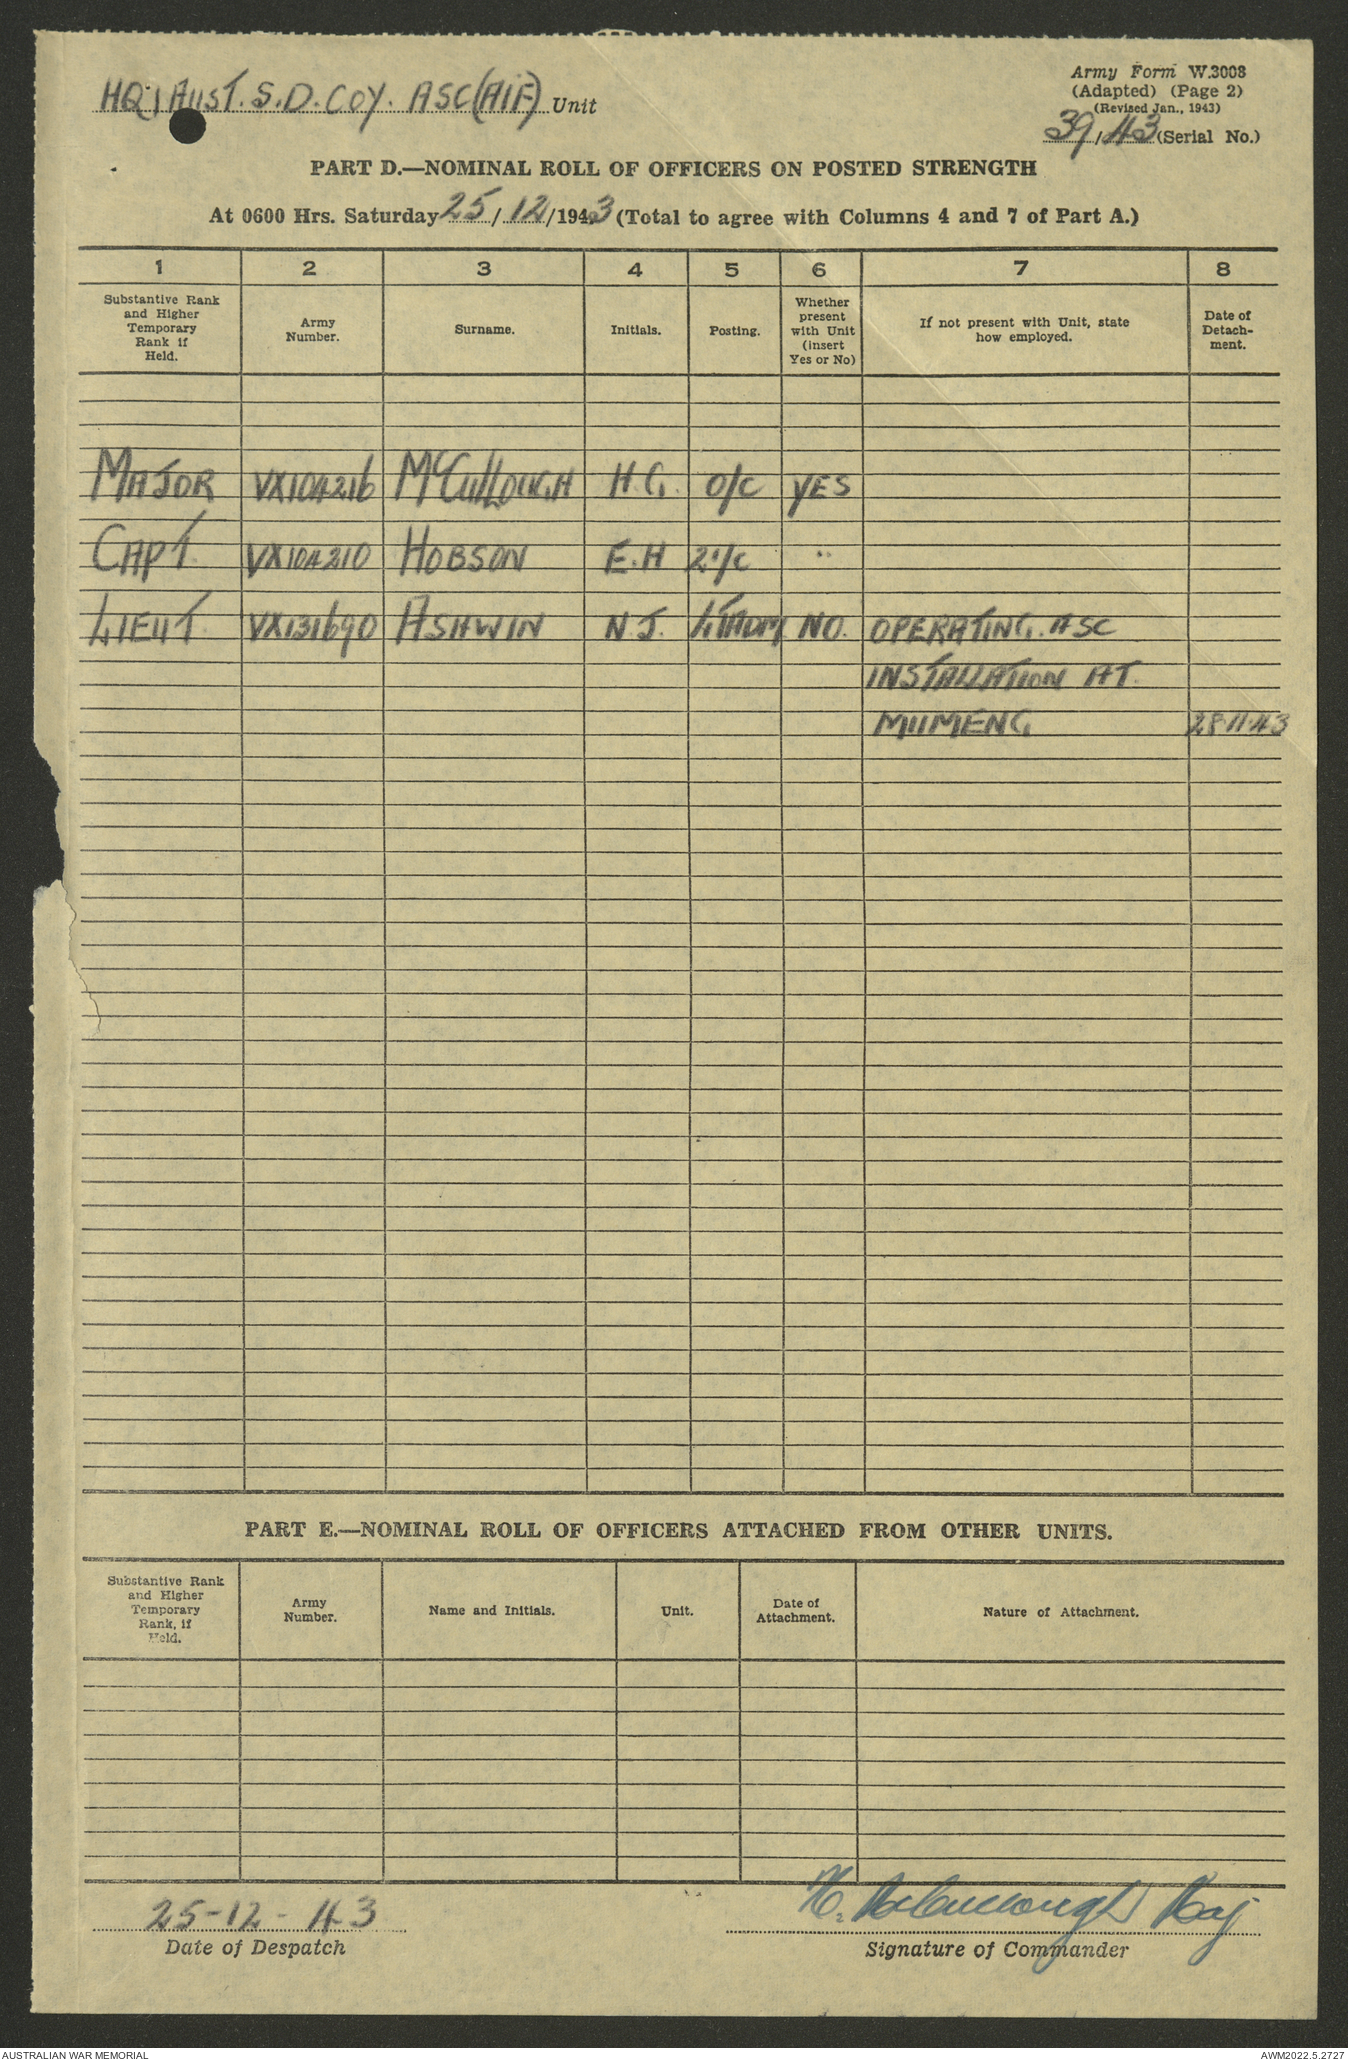 HQ 1 AUST. S.D. COY. ASC (AIF) Unit
Army Form W.3008
(Adapted) (Page 2)
(Revised Jan., 1943)
39/43 (Serial No.)
PART D.—NOMINAL ROLL OF OFFICERS ON POSTED STRENGTH
At 0600 Hrs. Saturday 25/12/1943 (Total to agree with Columns 4 and 7 of Part A.)
1 2 3 4 5 6 7 8
Substantive Rank
and Higher
Temporary
Rank if
Held.
Army
Number.
Surname.
Initials.
Posting.
Whether
present
with Unit
(insert
Yes or No)
If not present with Unit, state
how employed.
Date of
Detach-
ment.
MAJOR VX104216 McCULLOUGH H.G. O/C YES
CAPT. VX104210 HOBSON E.H 2i/c "
LIEUT. VX131690 ASHWIN N J. LTADM NO. OPERATING. ASC
INSTALLATION AT.
MUMENG 28.11.43
PART E.—NOMINAL ROLL OF OFFICERS ATTACHED FROM OTHER UNITS.
Substantive Rank
and Higher
Temporary
Rank, if
Held.
Army
Number.
Name and Initials.
Unit.
Date of
Attachment.
Nature of Attachment.
25-12-43
Date of Despatch
H. McCullough Maj
Signature of Commander
AUSTRALIAN WAR MEMORIAL
AWM2022.5.2727